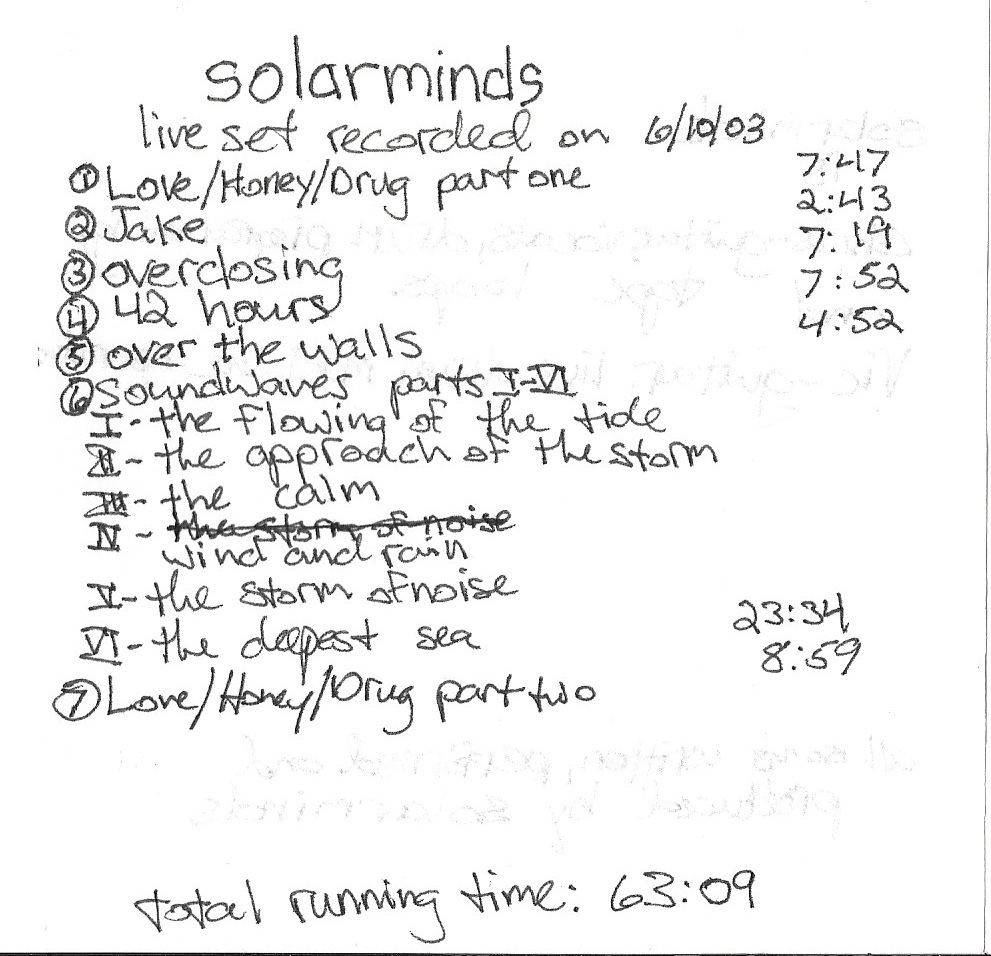 solarminds
live set recorded on 6/10/03
① Love/Honey/Drug part one 7:47
② Jake 2:43
③ overclosing 7:19
④ 42 hours 7:52
⑤ over the walls 4:52
⑥ soundwaves parts I-VI
I - the flowing of the tide
II - the approach of the storm
III - the calm
IV - the storm of noise
wind and rain
V - the storm of noise
VI - the deepest sea 23:34
⑦ Love/Honey/Drug part two 8:59
total running time: 63:09